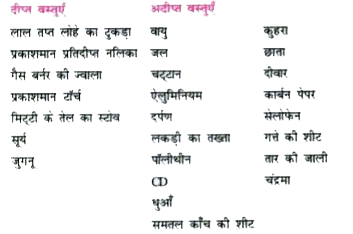 दीप्त वस्तुएँ अदीप्त वस्तुएँ
लाल तप्त लोहे का टुकड़ा वायु कुहरा
प्रकाशमान प्रतिदीप्त नलिका जल छाता
गैस बर्नर की ज्वाला चट्टान दीवार
प्रकाशमान टॉर्च ऐलुमिनियम कार्बन पेपर
मिट्टी के तेल का स्टोव दर्पण सेलोफेन
सूर्य लकड़ी का तख्ता गत्ते की शीट
जुगनू पॉलीथीन तार की जाली
CD चंद्रमा
धुआँ
समतल काँच की शीट